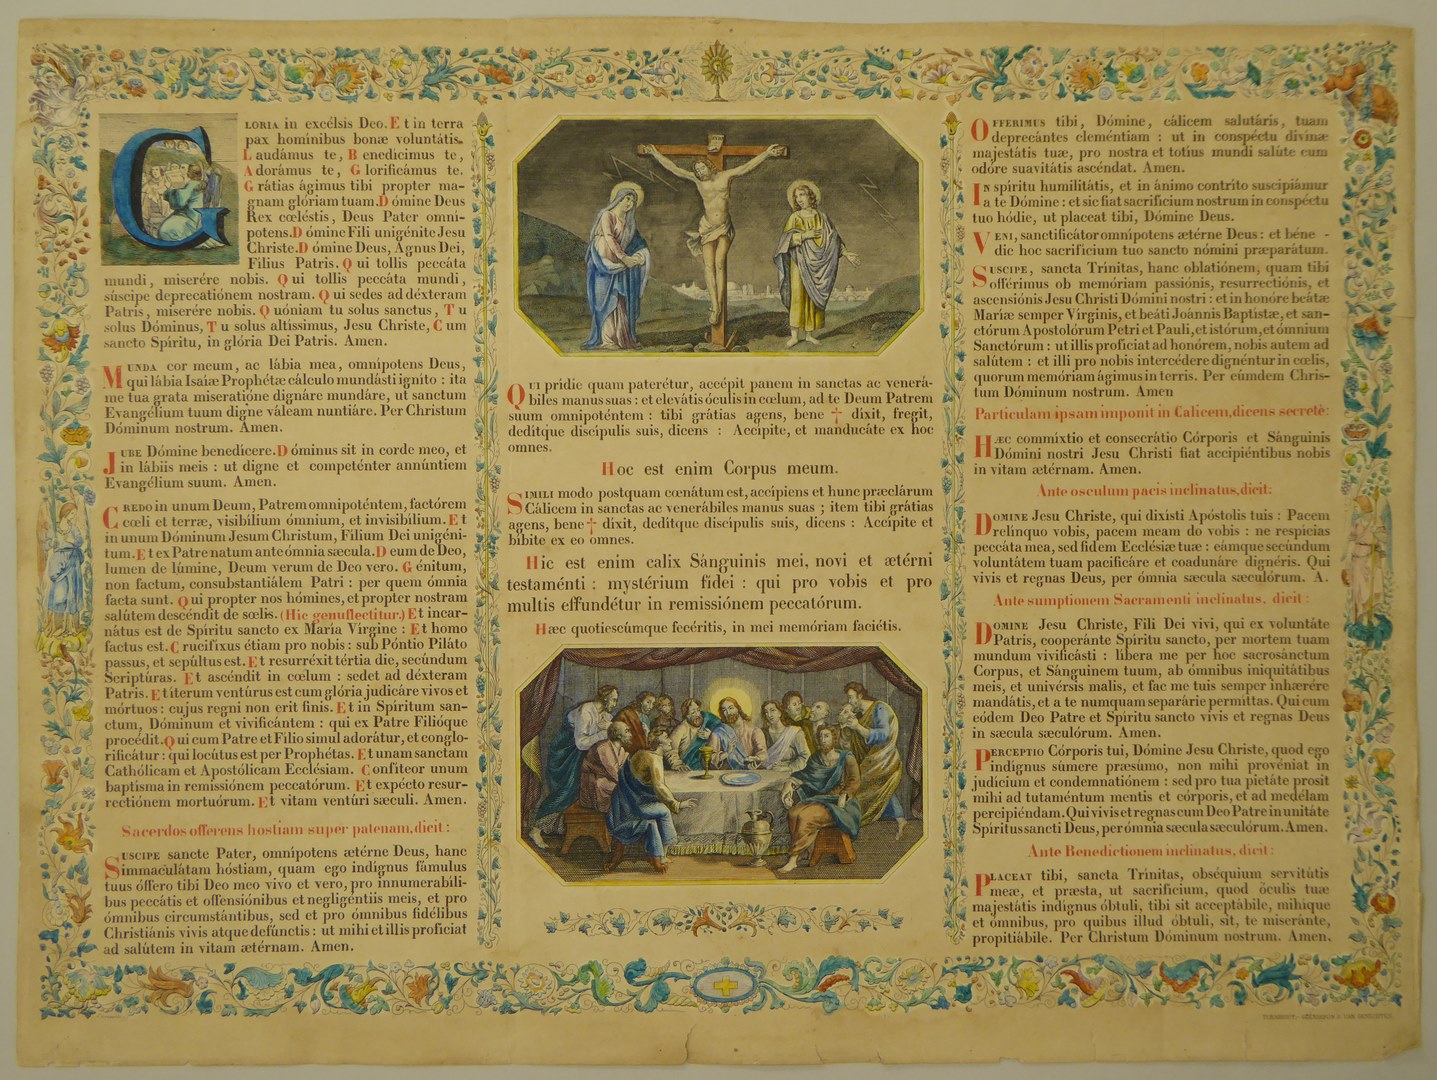 GLORIA in excélsis Deo. Et in terra
pax homínibus bonæ voluntátis.
Laudámus te, Benedícimus te,
Adorámus te, Glorificámus te.
Grátias ágimus tibi propter ma-
gnam glóriam tuam. Dómine Deus
Rex cœléstis, Deus Pater omní-
potens. Dómine Fili unigénite Jesu
Christe. Dómine Deus, Agnus Dei,
Fílius Patris. Qui tollis peccáta
mundi, miserére nobis. Qui tollis peccáta mundi,
súscipe deprecatiónem nostram. Qui sedes ad déxteram
Patris, miserére nobis. Quóniam tu solus sanctus, Tu
solus Dóminus, Tu solus altíssimus, Jesu Christe, Cum
sancto Spíritu, in glória Dei Patris. Amen.
MUNDA cor meum, ac lábia mea, omnípotens Deus,
qui lábia Isaíæ Prophétæ cálculo mundásti igníto : ita
me tua grata miseratióne dignáre mundáre, ut sanctum
Evangélium tuum digne váleam nuntiáre. Per Christum
Dóminum nostrum. Amen.
JUBE Dómine benedícere. Dóminus sit in corde meo, et
in lábiis meis : ut digne et competénter annúntiem
Evangélium suum. Amen.
CREDO in unum Deum, Patrem omnipoténtem, factórem
cœli et terræ, visibílium ómnium, et invisibílium. Et
in unum Dóminum Jesum Christum, Fílium Dei unigéni-
tum. Et ex Patre natum ante ómnia sæcula. Deum de Deo,
lumen de lúmine, Deum verum de Deo vero. Génitum,
non factum, consubstantiálem Patri : per quem ómnia
facta sunt. Qui propter nos hómines, et propter nostram
salútem descéndit de sœlis. (Hic genuflectitur.) Et incar-
nátus est de Spíritu sancto ex María Vírgine : Et homo
factus est. Crucifíxus étiam pro nobis : sub Póntio Piláto
passus, et sepúltus est. Et resurréxit tértia die, secúndum
Scriptúras. Et ascéndit in cœlum : sedet ad déxteram
Patris. Et íterum ventúrus est cum glória judicáre vivos et
mórtuos : cujus regni non erit finis. Et in Spíritum san-
ctum, Dóminum et vivificántem : qui ex Patre Filióque
procédit. Qui cum Patre et Fílio simul adorátur, et conglo-
rificátur : qui locútus est per Prophétas. Et unam sanctam
Cathólicam et Apostólicam Ecclésiam. Confíteor unum
baptísma in remissiónem peccatórum. Et expécto resur-
rectiónem mortuórum. Et vitam ventúri sæculi. Amen.
Sacerdos offerens hostiam super patenam, dicit :
SUSCIPE sancte Pater, omnípotens ætérne Deus, hanc
immaculátam hóstiam, quam ego indígnus fámulus
tuus óffero tibi Deo meo vivo et vero, pro innumerabíli-
bus peccátis et offensiónibus et negligéntiis meis, et pro
ómnibus circumstántibus, sed et pro ómnibus fidélibus
Christiánis vivis atque defúnctis : ut mihi et illis profíciat
ad salútem in vitam ætérnam. Amen.
QUI prídie quam paterétur, accépit panem in sanctas ac venerá-
biles manus suas : et elevátis óculis in cœlum, ad te Deum Patrem
suum omnipoténtem : tibi grátias agens, bene † dixit, fregit,
dedítque discípulis suis, dicens : Accípite, et manducáte ex hoc
omnes.
Hoc est enim Corpus meum.
SIMILI modo postquam cœnátum est, accípiens et hunc præclárum
Cálicem in sanctas ac venerábiles manus suas ; item tibi grátias
agens, bene † díxit, dedítque discípulis suis, dicens : Accípite et
bíbite ex eo omnes.
Hic est enim calix Sánguinis mei, novi et ætérni
testaménti : mystérium fídei : qui pro vobis et pro
multis effundétur in remissiónem peccatórum.
Hæc quotiescúmque fecéritis, in mei memóriam faciétis.
OFFERIMUS tibi, Dómine, cálicem salutáris, tuam
deprecántes cleméntiam : ut in conspéctu divínæ
majestátis tuæ, pro nostra et totíus mundi salúte cum
odóre suavitátis ascéndat. Amen.
IN spíritu humilitátis, et in ánimo contríto suscipiámur
a te Dómine : et sic fiat sacrifícium nostrum in conspéctu
tuo hódie, ut pláceat tibi, Dómine Deus.
VENI, sanctificátor omnípotens ætérne Deus : et béne-
dic hoc sacrifícium tuo sancto nómini præparátum.
SUSCIPE, sancta Trínitas, hanc oblatiónem, quam tibi
offérimus ob memóriam passiónis, resurrectiónis, et
ascensiónis Jesu Christi Dómini nostri : et in honóre beátæ
Maríæ semper Vírginis, et beáti Joánnis Baptístæ, et san-
ctórum Apostolórum Petri et Pauli, et istórum, et ómnium
Sanctórum : ut illis profíciat ad honórem, nobis autem ad
salútem : et illi pro nobis intercédere dignéntur in cœlis,
quorum memóriam ágimus in terris. Per eúmdem Chris-
tum Dóminum nostrum. Amen
Particulam ipsam imponit in Calicem, dicens secretè:
HÆC commíxtio et consecrátio Córporis et Sánguinis
Dómini nostri Jesu Christi fiat accipiéntibus nobis
in vitam ætérnam. Amen.
Ante osculum pacis inclinatus, dicit:
DOMINE Jesu Christe, qui dixísti Apóstolis tuis : Pacem
relínquo vobis, pacem meam do vobis : ne respícias
peccáta mea, sed fidem Ecclésiæ tuæ : eámque secúndum
voluntátem tuam pacificáre et coadunáre dignéris. Qui
vivis et regnas Deus, per ómnia sæcula sæculórum. A.
Ante sumptionem Sacramenti inclinatus, dicit :
DOMINE Jesu Christe, Fili Dei vivi, qui ex voluntáte
Patris, cooperánte Spíritu sancto, per mortem tuam
mundum vivificásti : líbera me per hoc sacrosánctum
Corpus, et Sánguinem tuum, ab ómnibus iniquitátibus
meis, et univérsis malis, et fac me tuis semper inhærére
mandátis, et a te numquam separári­e permíttas. Qui cum
eódem Deo Patre et Spíritu sancto vivis et regnas Deus
in sæcula sæculórum. Amen.
PERCEPTIO Córporis tui, Dómine Jesu Christe, quod ego
indígnus súmere præsúmo, non mihi provéniat in
judícium et condemnatiónem : sed pro tua pietáte prosit
mihi ad tutaméntum mentis et córporis, et ad medélam
percipiéndam. Qui vivis et regnas cum Deo Patre in unitáte
Spíritus sancti Deus, per ómnia sæcula sæculórum. Amen.
Ante Benedictionem inclinatus, dicit :
PLACEAT tibi, sancta Trínitas, obséquium servitútis
meæ, et præsta, ut sacrifícium, quod óculis tuæ
majestátis indígnus óbtuli, tibi sit acceptábile, mihíque
et ómnibus, pro quibus illud óbtuli, sit, te miseránte,
propitiábile. Per Christum Dóminum nostrum. Amen.